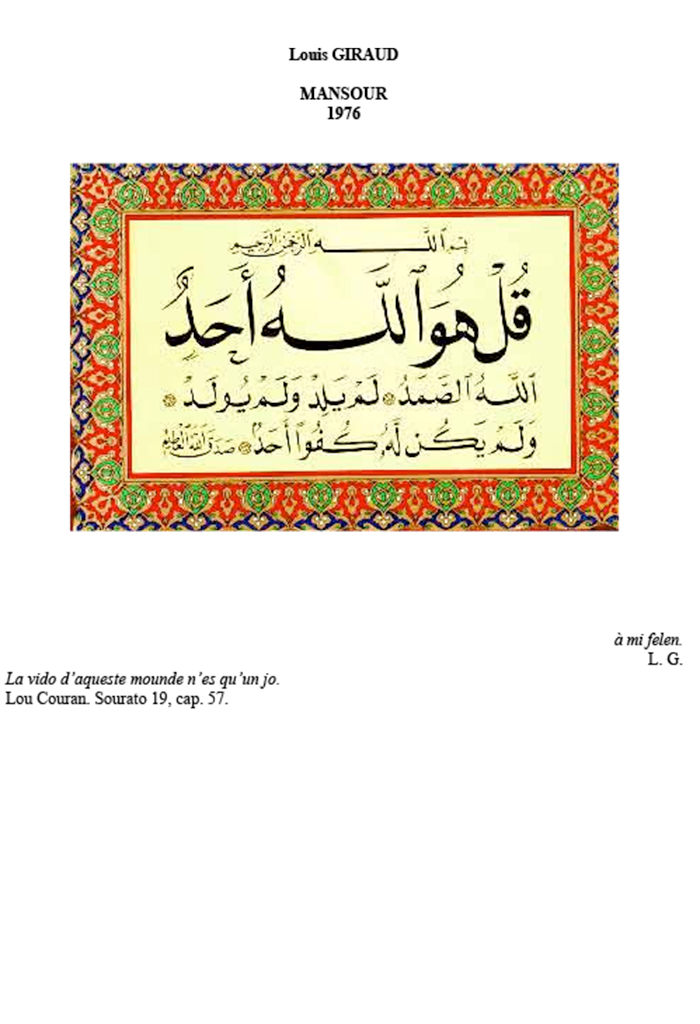 Louis GIRAUD
MANSOUR
1976
بِسْمِ ٱللَّهِ ٱلرَّحْمَٰنِ ٱلرَّحِيمِ
قُلْ هُوَ ٱللَّهُ أَحَدٌ
ٱللَّهُ ٱلصَّمَدُ لَمْ يَلِدْ وَلَمْ يُولَدْ
وَلَمْ يَكُن لَّهُ كُفُوًا أَحَدٌ صَدَقَ ٱللَّهُ ٱلْعَظِيمُ
à mi felen.
L. G.
La vido d'aqueste mounde n'es qu'un jo.
Lou Couran. Sourato 19, cap. 57.